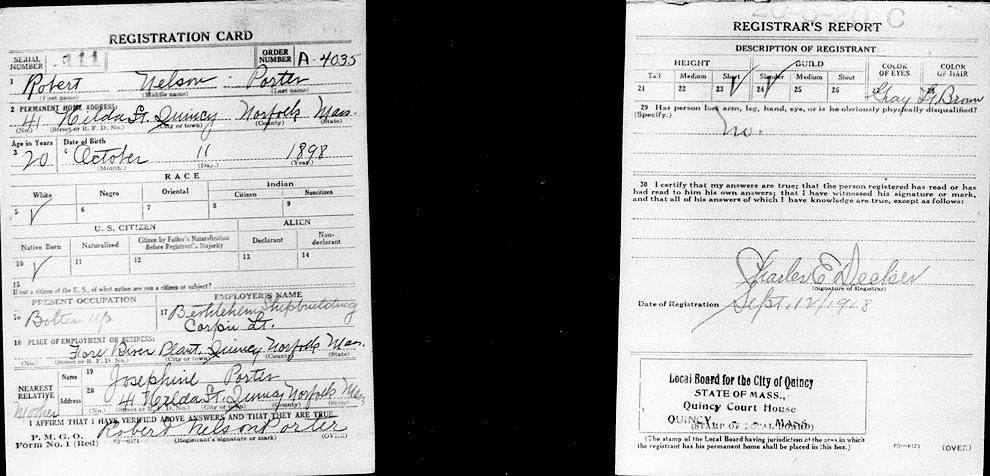 REGISTRATION CARD
SERIAL NUMBER 911 ORDER NUMBER A-4035
1 Robert Nelson Porter
(First name) (Middle name) (Last name)
2 PERMANENT HOME ADDRESS:
41 Hilda St. Quincy Norfolk Mass.
(No.) (Street or R. F. D. No.) (City or town) (County) (State)
Age in Years Date of Birth
3 20 4 October 11 1898
(Month.) (Day.) (Year.)
RACE
White Negro Oriental Indian
Citizen Noncitizen
5 ✓ 6 7 8 9
U. S. CITIZEN ALIEN
Native Born Naturalized Citizen by Father's Naturalization Before Registrant's Majority Declarant Non-declarant
10 ✓ 11 12 13 14
15
If not a citizen of the U. S., of what nation are you a citizen or subject?
PRESENT OCCUPATION EMPLOYER'S NAME
16 Bolter Up 17 Bethlehem Shipbuilding
18 PLACE OF EMPLOYMENT OR BUSINESS:
Fore River Plant, Quincy Norfolk Mass.
(No.) (Street or R. F. D. No.) (City or town) (County) (State)
NEAREST RELATIVE Name 19 Josephine Porter
Mother Address 20 41 Hilda St. Quincy Norfolk Mass
(No.) (Street or R. F. D. No.) (City or town) (County) (State)
I AFFIRM THAT I HAVE VERIFIED ABOVE ANSWERS AND THAT THEY ARE TRUE
P. M. G. O.
Form No. 1 (Red) Robert Nelson Porter
(Registrant's signature or mark) (OVER)
C
REGISTRAR'S REPORT
DESCRIPTION OF REGISTRANT
HEIGHT BUILD COLOR OF EYES COLOR OF HAIR
Tall Medium Short Slender Medium Stout
21 22 23 ✓ 24 ✓ 25 26 27 Gray 28 Brown
29 Has person lost arm, leg, hand, eye, or is he obviously physically disqualified?
(Specify.) No.
30 I certify that my answers are true; that the person registered has read or has
had read to him his own answers; that I have witnessed his signature or mark,
and that all of his answers of which I have knowledge are true, except as follows:
Charles E Decker
(Signature of Registrar)
Date of Registration Sept. 12/1918
Local Board for the City of Quincy
STATE OF MASS.,
Quincy Court House
QUINCY MASS.
(STAMP OF LOCAL BOARD)
(The stamp of the Local Board having jurisdiction of the area in which
the registrant has his permanent home shall be placed in this box.)
03—6171 (OVER)